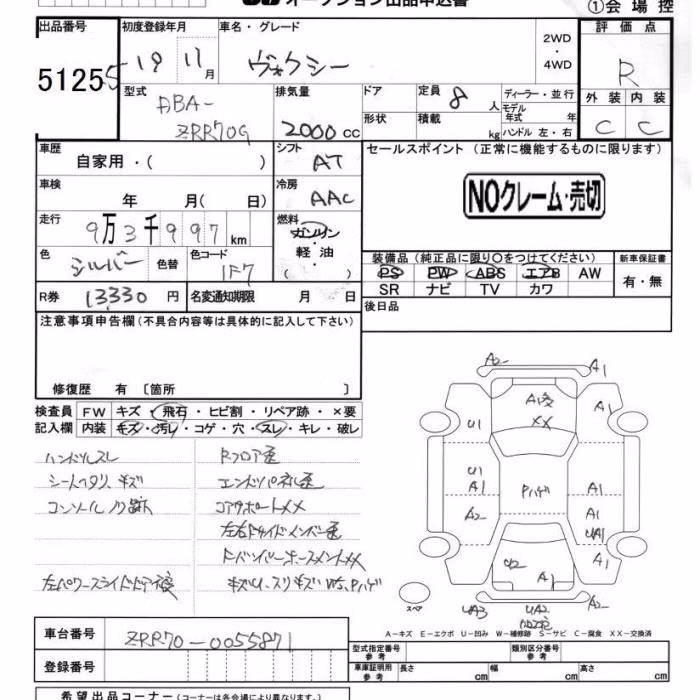 オークション出品申込書
①会場控
出品番号 初度登録年月 車名・グレード 評価点
51255 19 11月 ヴォクシー 2WD・4WD R
型式 DBA-ZRR70G 排気量 2000cc ドア 定員 8人 ディーラー・並行 外装 内装
形状 積載 kg モデル年式 年 ハンドル 左・右 C C
車歴 自家用・( ) シフト AT セールスポイント (正常に機能するものに限ります)
車検 年 月(日) 冷房 AAC NOクレーム・売切
走行 9万3千997km 燃料 ガソリン 軽油 ( )
装備品 (純正品に限り○をつけてください) 新車保証書
色 シルバー 色替 色コード 1F7 PS PW ABS エアB AW 有・無
SR ナビ TV カワ
R券 13330円 名変通知期限 月 日 後日品
注意事項申告欄 (不具合内容等は具体的に記入して下さい)
修復歴 有 〔箇所 〕
検査員 FW キズ・飛石・ヒビ割・リペア跡・×要
記入欄 内装 キズ・汚レ・コゲ・穴・スレ・キレ・破レ
ハンドルスレ Rフロア歪
シートヘタリ、キズ エンドパネル歪
コンソールノリ跡 コアサポートXX
左右Rサイドメンバー歪
A2 A1
XX A1
U1
U1
A1 Pハゲ A1
A2 A1
UA1
U2 A1 A1
UA3 UA2 A2
スペア
A-キズ E-エクボ U-凹み W-補修跡 S-サビ C-腐食 XX-交換済
車台番号 ZRR70-0055871
登録番号
型式指定番号 参考 類別区分番号 参考
車庫証明用 参考 長さ cm 幅 cm 高さ cm
希望出品コーナー (コーナーは各会場により異なります。)